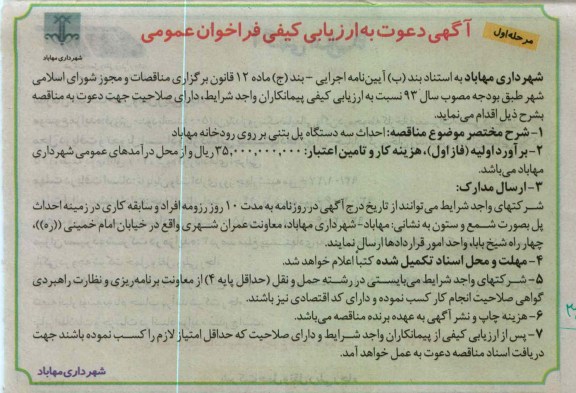 مرحله اول
آگهی دعوت به ارزیابی کیفی فراخوان عمومی
شهرداری مهاباد
شهرداری مهاباد به استناد بند (ب) آیین‌نامه اجرایی - بند (ج) ماده ۱۲ قانون برگزاری مناقصات و مجوز شورای اسلامی
شهر طبق بودجه مصوب سال ۹۳ نسبت به ارزیابی کیفی پیمانکاران واجد شرایط، دارای صلاحیت جهت دعوت به مناقصه
بشرح ذیل اقدام می‌نماید.
۱- شرح مختصر موضوع مناقصه: احداث سه دستگاه پل بتنی بر روی رودخانه مهاباد
۲- برآورد اولیه (فاز اول)، هزینه کار و تامین اعتبار: ۳۵,۰۰۰,۰۰۰,۰۰۰ ریال و از محل درآمدهای عمومی شهرداری
مهاباد می‌باشد.
۳- ارسال مدارک:
شرکتهای واجد شرایط می‌توانند از تاریخ درج آگهی در روزنامه به مدت ۱۰ روز رزومه افراد و سابقه کاری در زمینه احداث
پل بصورت شمع و ستون به نشانی: مهاباد- شهرداری مهاباد، معاونت عمران شهری واقع در خیابان امام خمینی ((ره))،
چهار راه شیخ بابا، واحد امور قراردادها ارسال نمایند.
۴- مهلت و محل اسناد تکمیل شده کتباً اعلام خواهد شد.
۵- شرکتهای واجد شرایط می‌بایستی در رشته حمل و نقل (حداقل پایه ۴) از معاونت برنامه‌ریزی و نظارت راهبردی
گواهی صلاحیت انجام کار کسب نموده و دارای کد اقتصادی نیز باشند.
۶- هزینه چاپ و نشر آگهی به عهده برنده مناقصه می‌باشد.
۷- پس از ارزیابی کیفی از پیمانکاران واجد شرایط و دارای صلاحیت که حداقل امتیاز لازم را کسب نموده باشند جهت
دریافت اسناد مناقصه دعوت به عمل خواهد آمد.
شهرداری مهاباد